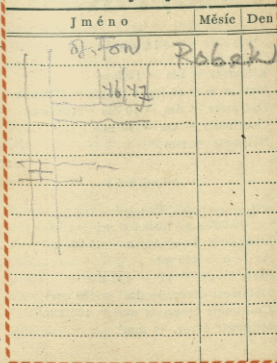 Jméno Měsíc Den
Robek
46 47